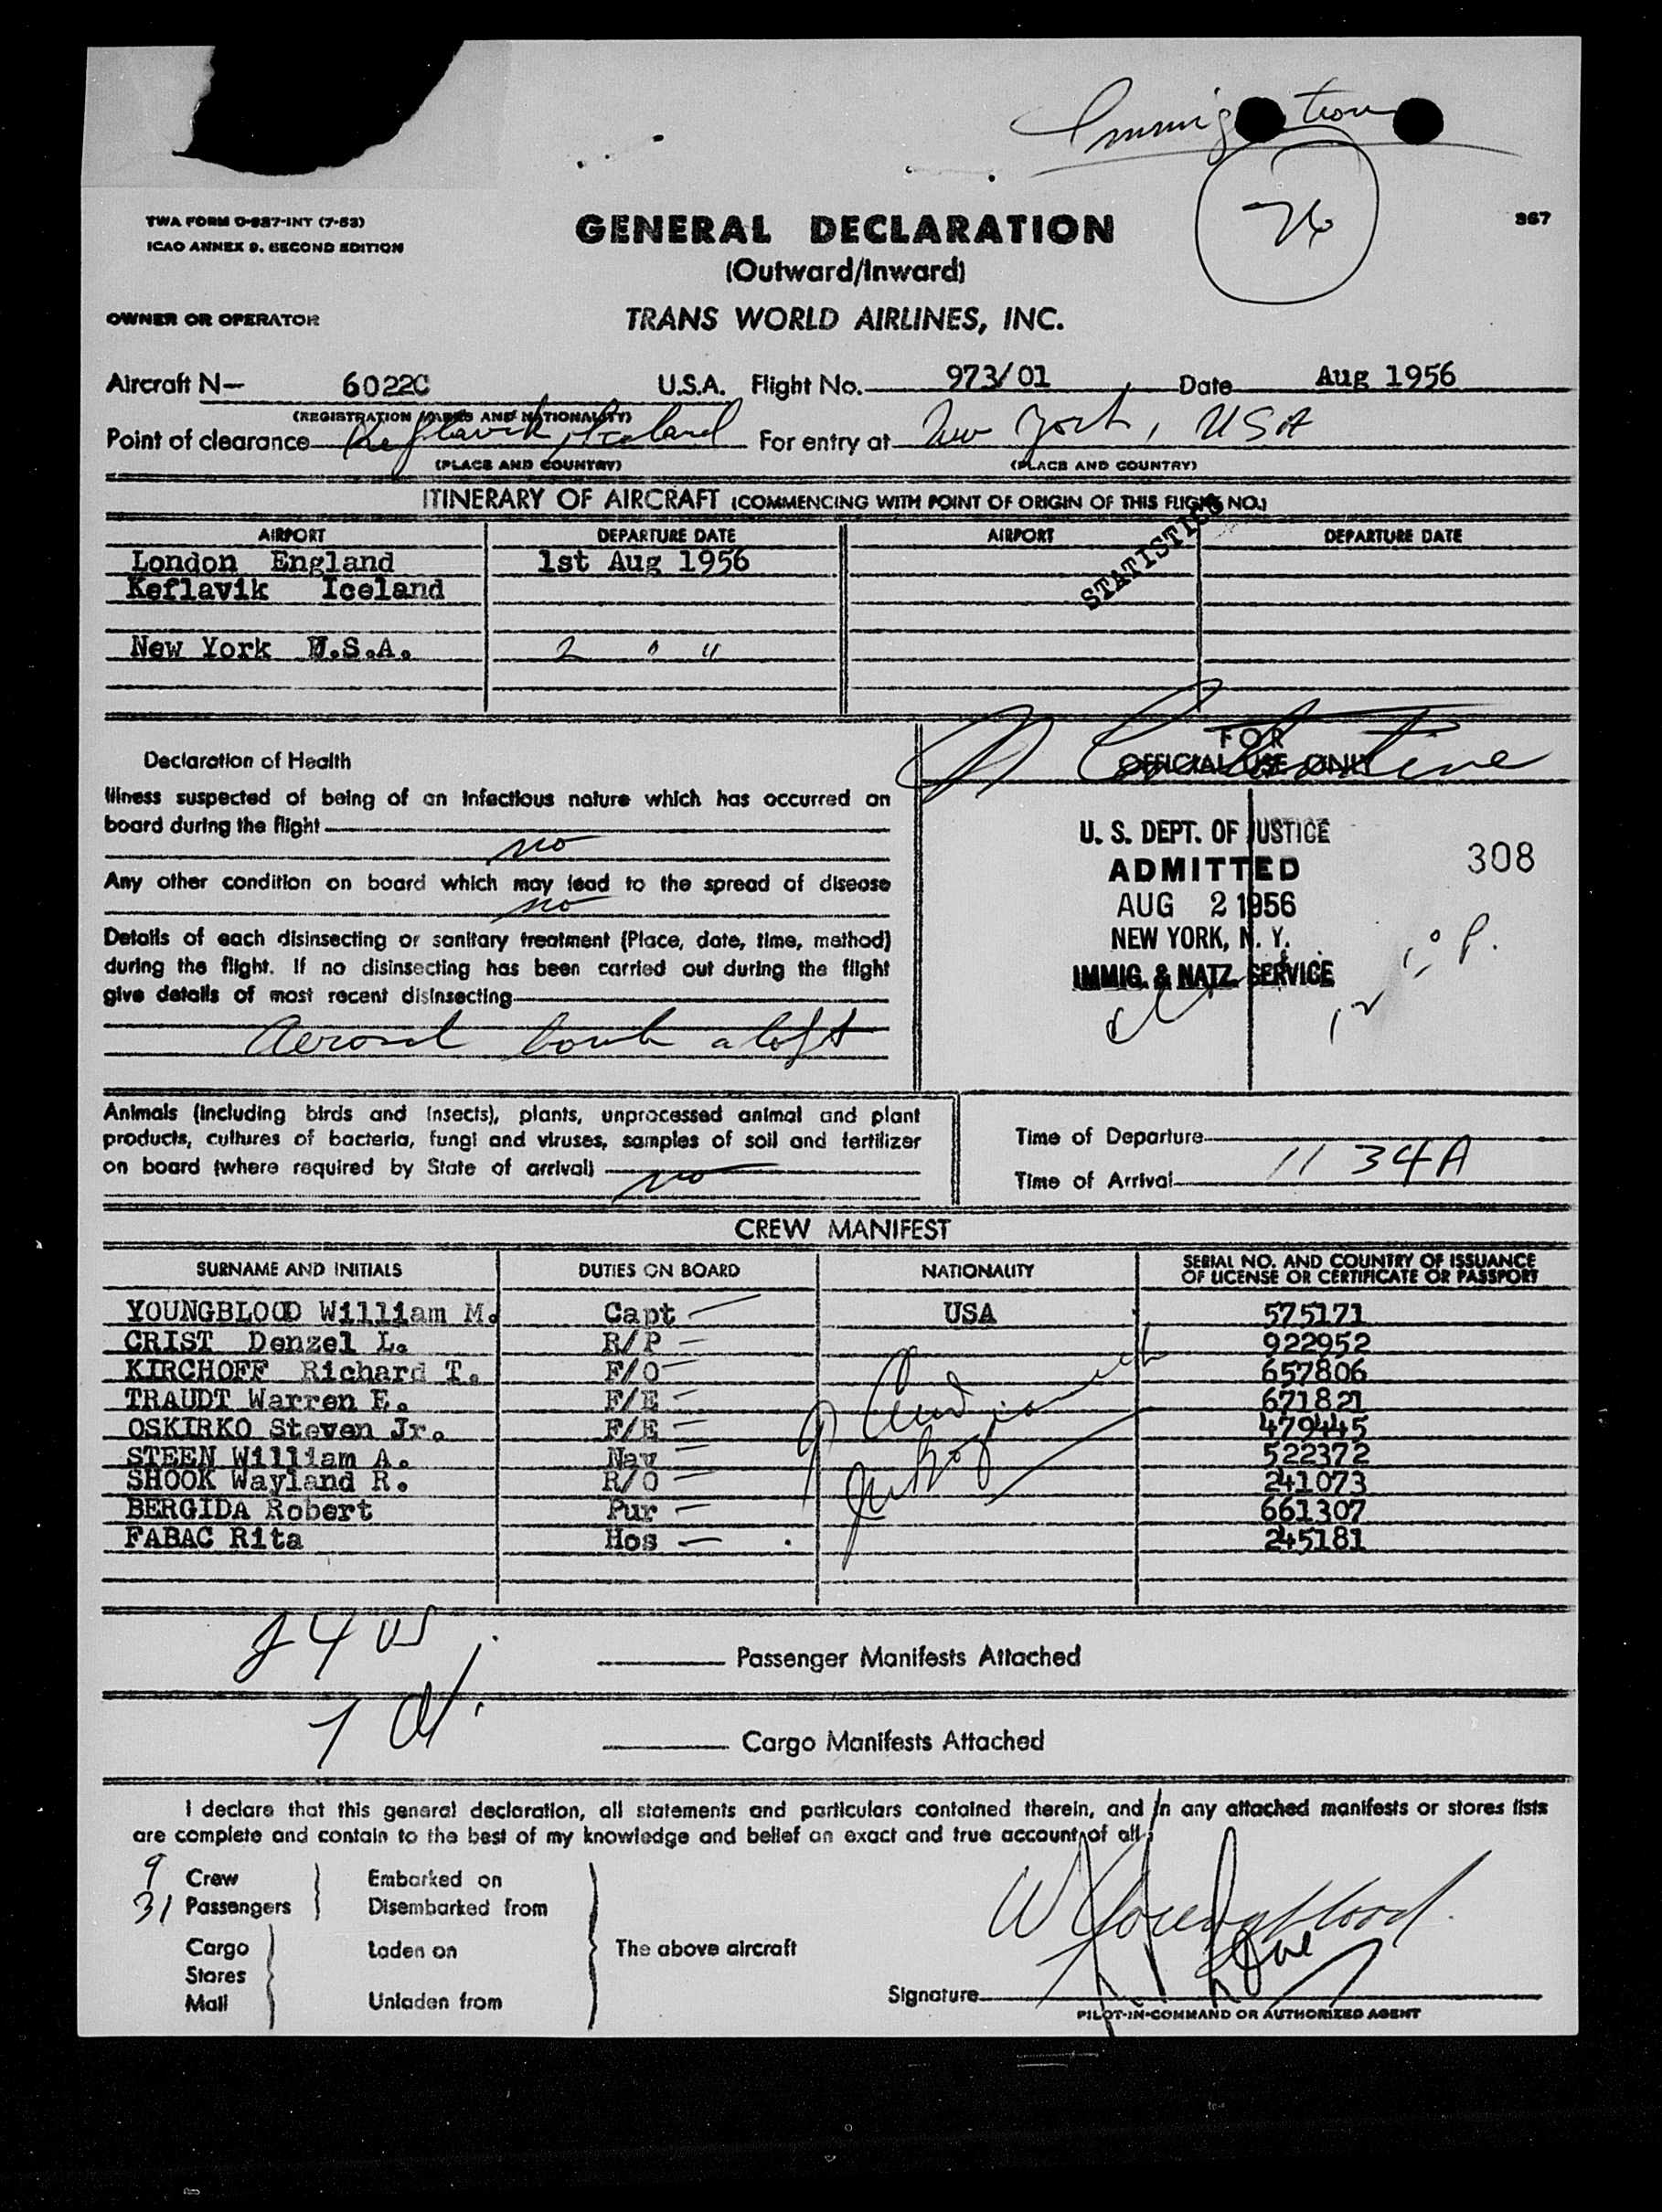 Immig tion
TWA FORM O-937-INT (7-53)
ICAO ANNEX 9, SECOND EDITION
GENERAL DECLARATION
(Outward/Inward)
367
OWNER OR OPERATOR
TRANS WORLD AIRLINES, INC.
Aircraft N— 6022C U.S.A. Flight No. 973/01 Date Aug 1956
(REGISTRATION MARKS AND NATIONALITY)
Point of clearance Keflavik, Iceland For entry at New York, USA
(PLACE AND COUNTRY) (PLACE AND COUNTRY)
ITINERARY OF AIRCRAFT (COMMENCING WITH POINT OF ORIGIN OF THIS FLIGHT NO.)
AIRPORT DEPARTURE DATE AIRPORT DEPARTURE DATE
London England 1st Aug 1956
Keflavik Iceland
STATISTICS
New York U.S.A. 2 " "
Declaration of Health
FOR
OFFICIAL USE ONLY
Illness suspected of being of an infectious nature which has occurred on
board during the flight
no
Any other condition on board which may lead to the spread of disease
no
Details of each disinsecting or sanitary treatment (Place, date, time, method)
during the flight. If no disinsecting has been carried out during the flight
give details of most recent disinsecting
Aerosol bomb aloft
U. S. DEPT. OF JUSTICE
ADMITTED
308
AUG 2 1956
NEW YORK, N. Y.
IMMIG. & NATZ. SERVICE
Animals (including birds and insects), plants, unprocessed animal and plant
products, cultures of bacteria, fungi and viruses, samples of soil and fertilizer
on board (where required by State of arrival)
no
Time of Departure
Time of Arrival 11 34A
CREW MANIFEST
SURNAME AND INITIALS DUTIES ON BOARD NATIONALITY SERIAL NO. AND COUNTRY OF ISSUANCE OF LICENSE OR CERTIFICATE OR PASSPORT
YOUNGBLOOD William M. Capt USA 575171
CRIST Denzel L. R/P 922952
KIRCHOFF Richard T. F/O 657806
TRAUDT Warren E. F/E 671821
OSKIRKO Steven Jr. F/E 479445
STEEN William A. Nav 522372
SHOOK Wayland R. R/O 241073
BERGIDA Robert Pur 661307
FABAC Rita Hos 245181
Passenger Manifests Attached
Cargo Manifests Attached
I declare that this general declaration, all statements and particulars contained therein, and in any attached manifests or stores lists
are complete and contain to the best of my knowledge and belief an exact and true account of all
9 Crew Embarked on
31 Passengers Disembarked from
Cargo Laden on The above aircraft
Stores
Mail Unladen from
W Youngblood
Signature
PILOT-IN-COMMAND OR AUTHORIZED AGENT